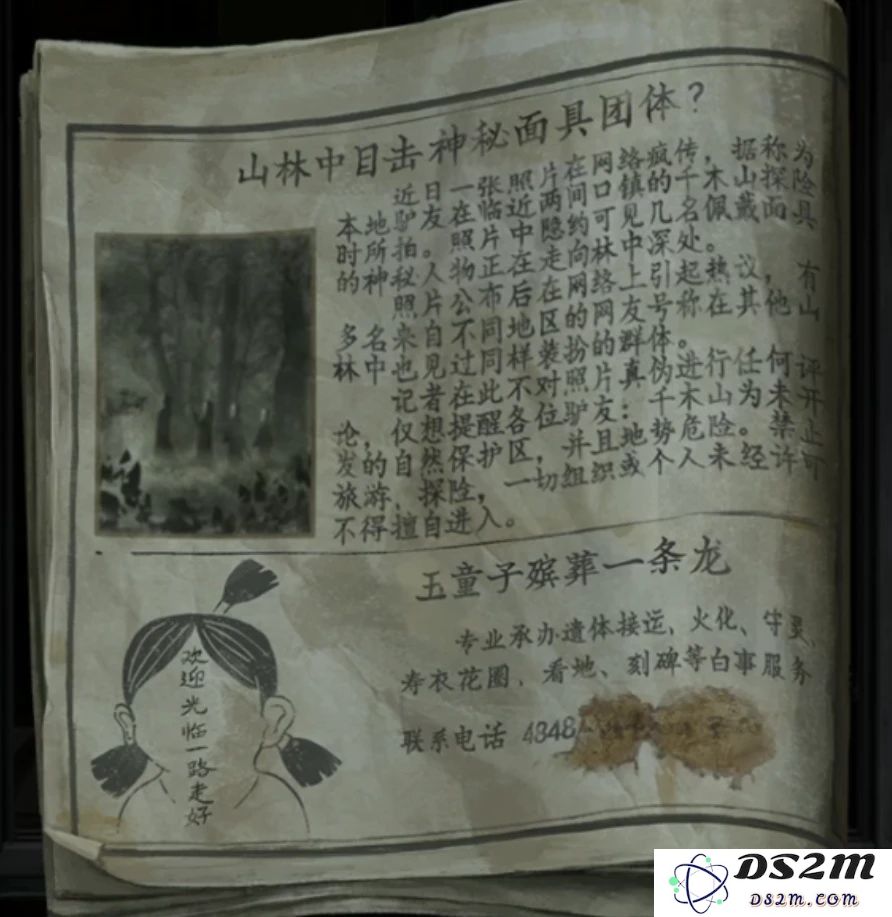 山林中目击神秘面具团体？
近日一张照片在网络疯传，据称为
本地驴友在临近两间口镇的千木山探险
时所拍。照片中隐约可见几名佩戴面具
的神秘人物正在走向林中深处。
照片公布后在网络上引起热议，有
多名来自不同地区的网友号称在其他山
林中也见过同样装扮的群体。
记者在此不对照片真伪进行任何评
论，仅想提醒各位驴友：千木山为未开
发的自然保护区，并且地势危险。禁止
旅游、探险，一切组织或个人未经许可
不得擅自进入。
玉童子殡葬一条龙
专业承办遗体接运、火化、守灵、
寿衣花圈、看地、刻碑等白事服务
联系电话 4848
欢迎光临一路走好
DS2M
DS2m.com